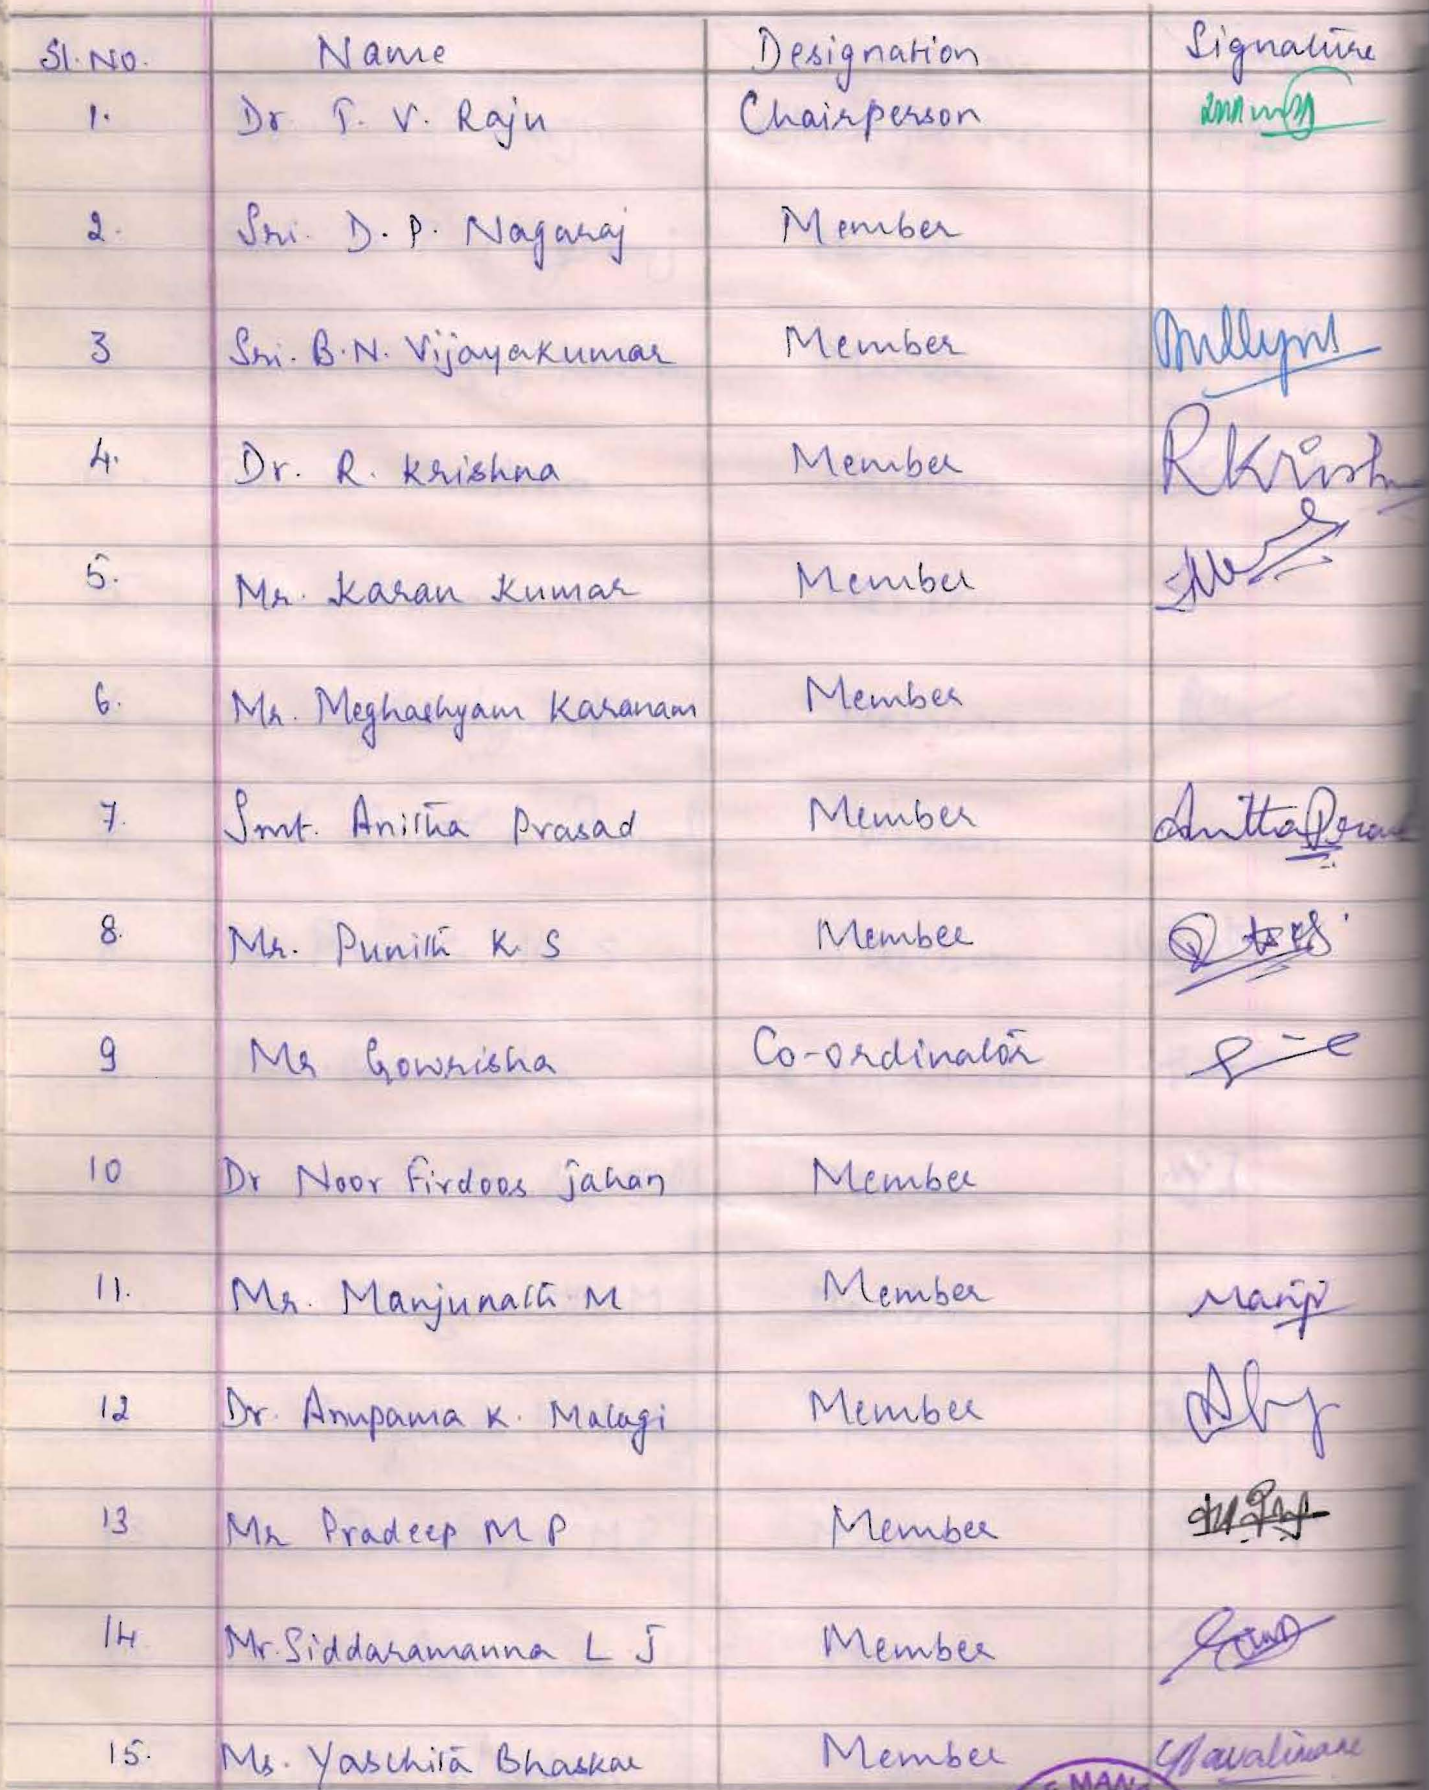 Sl. No. Name Designation Signature
1. Dr T. V. Raju Chairperson
2. Sri. D. P. Nagaraj Member
3 Sri. B. N. Vijayakumar Member
4. Dr. R. Krishna Member RKrish
5. Mr. Karan Kumar Member
6. Mr. Meghashyam Karanam Member
7. Smt. Anitha Prasad Member
8. Mr. Punith K S Member
9 Mr Gowrisha Co-ordinator
10 Dr Noor Firdoos Jahan Member
11. Mr. Manjunath M Member Manju
12 Dr. Anupama K. Malagi Member
13 Mr Pradeep M P Member
14 Mr. Siddaramanna L J Member
15. Ms. Yaschita Bhaskar Member